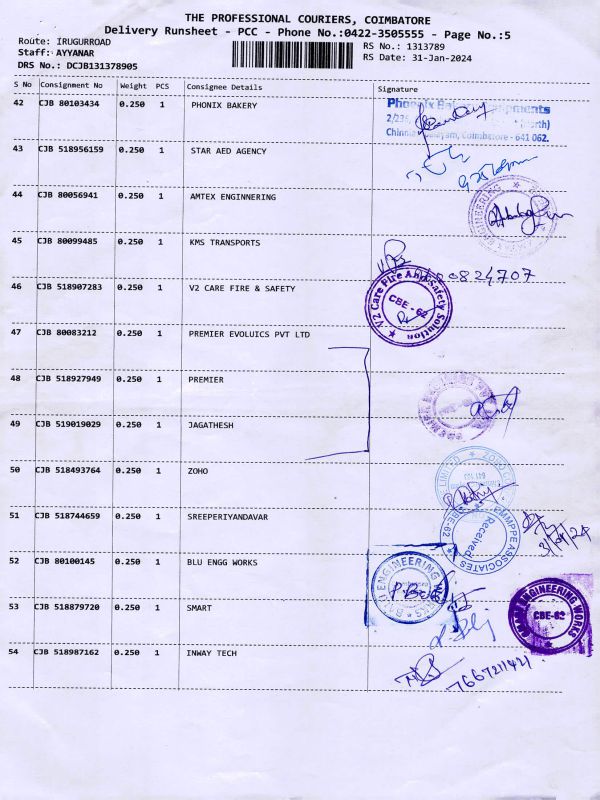 THE PROFESSIONAL COURIERS, COIMBATORE
Delivery Runsheet - PCC - Phone No.:0422-3505555 - Page No.:5
Route: IRUGURROAD
RS No.: 1313789
Staff: AYYANAR
RS Date: 31-Jan-2024
DRS No.: DCJB131378905
S No Consignment No Weight PCS Consignee Details Signature
42 CJB 80103434 0.250 1 PHONIX BAKERY
Chinniampalayam, Coimbatore - 641 062.
43 CJB 518956159 0.250 1 STAR AED AGENCY
44 CJB 80056941 0.250 1 AMTEX ENGINNERING
45 CJB 80099485 0.250 1 KMS TRANSPORTS
46 CJB 518907283 0.250 1 V2 CARE FIRE & SAFETY
V2 Care Fire And Safety Solution
CBE - 62
47 CJB 80083212 0.250 1 PREMIER EVOLUICS PVT LTD
48 CJB 518927949 0.250 1 PREMIER
49 CJB 519019029 0.250 1 JAGATHESH
50 CJB 518493764 0.250 1 ZOHO
51 CJB 518744659 0.250 1 SREEPERIYANDAVAR
ASSOCIATES
Received
52 CJB 80100145 0.250 1 BLU ENGG WORKS
ENGINEERING WORKS
53 CJB 518879720 0.250 1 SMART
ENGINEERING WORKS
CBE-62
54 CJB 518987162 0.250 1 INWAY TECH